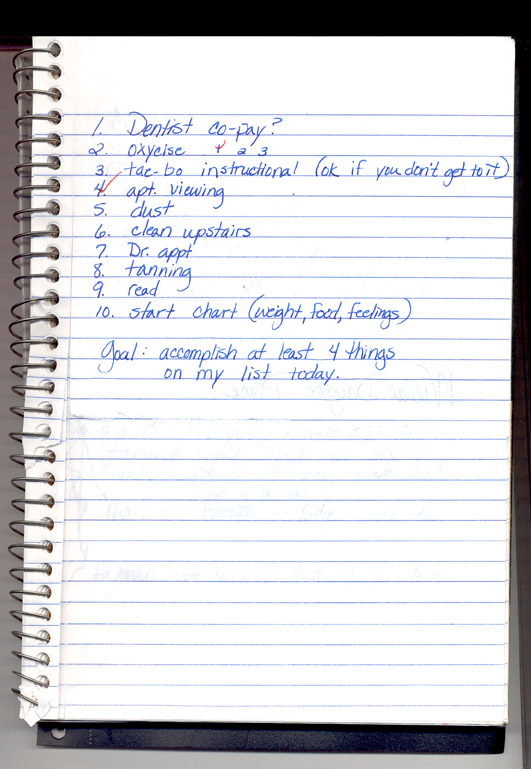 1. Dentist co-pay?
2. oxycise 1 2 3
3. tae-bo instructional (ok if you don't get to it)
4. apt. viewing
5. dust
6. clean upstairs
7. Dr. appt
8. tanning
9. read
10. start chart (weight, food, feelings)
Goal: accomplish at least 4 things
on my list today.